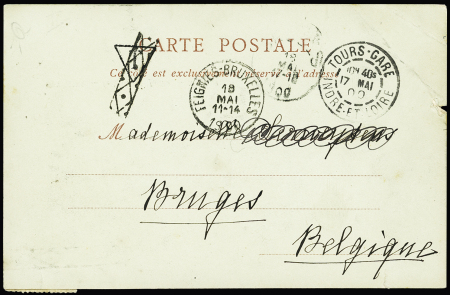 CARTE POSTALE
Ce côté est exclusivement réservé à l'adresse
FEIGNIES-BRUXELLES
18
MAI
11-14
TOURS-GARE
17 MAI
INDRE-ET-LOIRE
Mademoiselle
Bruges
Belgique